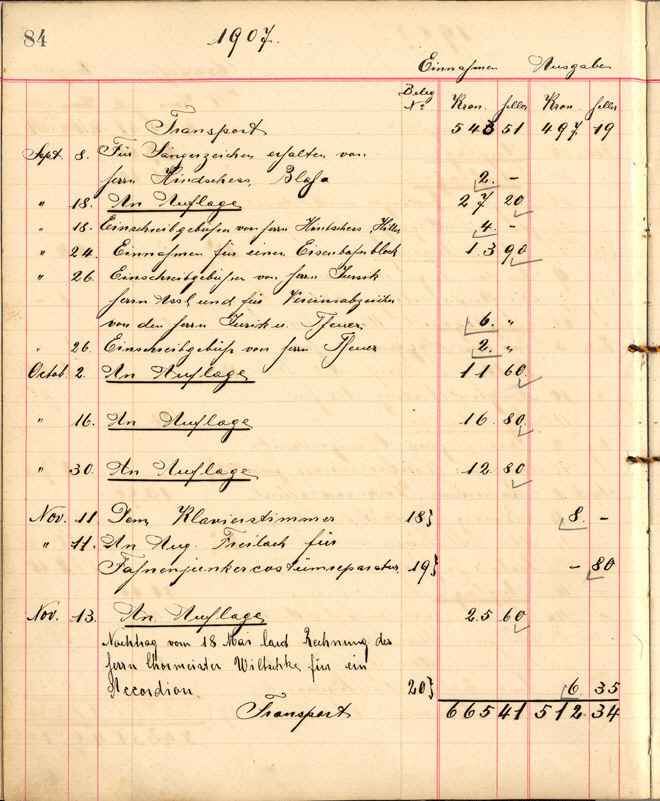 84
1907.
Einnahmen Ausgaben
Beleg No Kron. heller Kron. heller
Transport 543 51 497 19
Sept. 8. Für Sängerzeichen erhalten von
Herrn Hindschess, 2. –
" 18. An Auflage 27 20
" 18. Einschreibgebühren von Herrn 4. –
" 24. Einnahmen für einen Eisenbahnblock 13 90
" 26. Einschreibgebühren von Herrn Jursik
Herrn Assl und für Vereinsabzeichen
von den Herrn Jursik u. Pfeuer. 6. "
" 26. Einschreibgebühr von Herrn Pfeuer 2. "
Octob. 2. An Auflage 11 60
" 16. An Auflage 16. 80
" 30. An Auflage 12. 80
Nov. 11 Dem Klavierstimmer 18} 8. –
" 11. An Aug. Freilach für
Fahnenjunkercostümreparatur 19} – 80
Nov. 13. An Auflage 25 60
Nachtrag vom 18 Mai laut Rechnung des
Herrn Chormeister Wiltschke für ein
Accordion. 20} 6 35
Transport 665 41 512 34